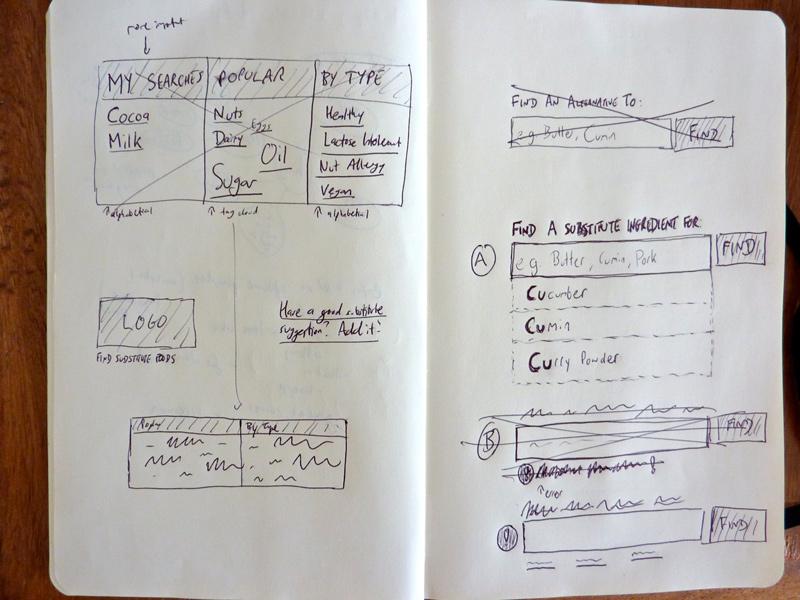 MY SEARCHES
POPULAR
BY TYPE
Cocoa
Milk
Nuts
Dairy
Eggs
Oil
Sugar
Healthy
Lactose Intolerant
Nut Allergy
Vegan
alphabetical
tag cloud
alphabetical
LOGO
FIND SUBSTITUTE FOODS
Have a good substitute
suggestion? Add it!
By Type
FIND AN ALTERNATIVE TO:
e.g. Butter, Cumin
FIND
FIND A SUBSTITUTE INGREDIENT FOR:
A
e.g. Butter, Cumin, Pork
FIND
Cucumber
Cumin
Curry Powder
B
FIND
error
!
FIND